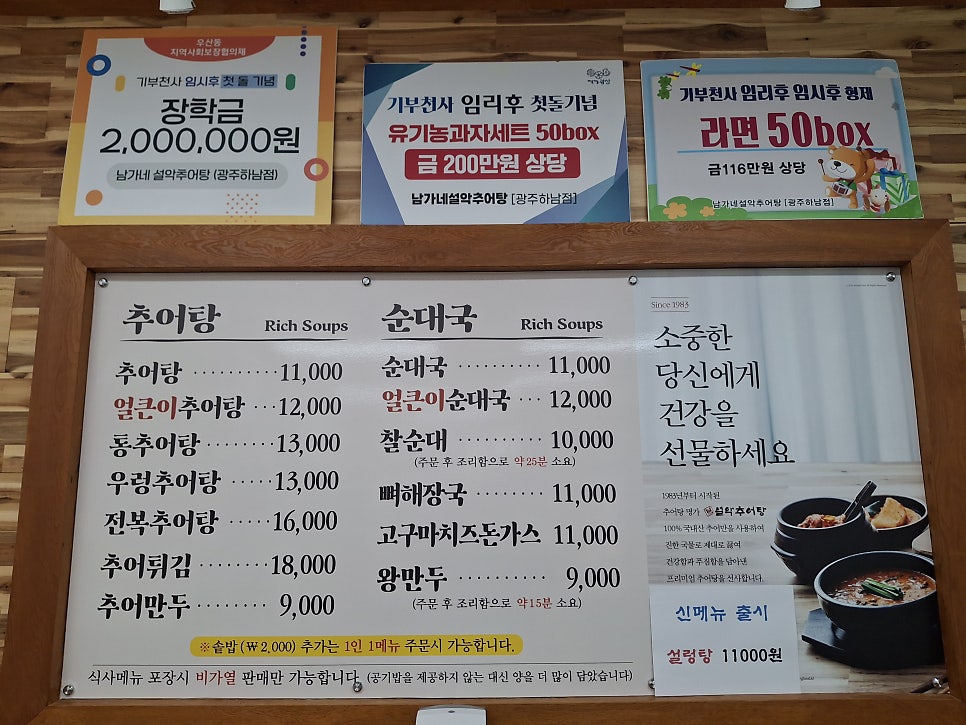 우산동
지역사회보장협의체
기부천사 임시후 첫 돌 기념
장학금
2,000,000원
남가네 설악추어탕 (광주하남점)
기부천사 임리후 첫돌기념
유기농과자세트 50box
금 200만원 상당
남가네설악추어탕 [광주하남점]
기부천사 임리후 임시후 형제
라면 50box
금116만원 상당
남가네설악추어탕 [광주하남점]
추어탕 Rich Soups
추어탕 ·········· 11,000
얼큰이추어탕 ··· 12,000
통추어탕 ········ 13,000
우렁추어탕 ····· 13,000
전복추어탕 ····· 16,000
추어튀김 ········ 18,000
추어만두 ········ 9,000
순대국 Rich Soups
순대국 ·········· 11,000
얼큰이순대국 ··· 12,000
찰순대 ·········· 10,000
(주문 후 조리함으로 약25분 소요)
뼈해장국 ········ 11,000
고구마치즈돈가스 11,000
왕만두 ·········· 9,000
(주문 후 조리함으로 약15분 소요)
※솥밥(₩2,000) 추가는 1인 1메뉴 주문시 가능합니다.
식사메뉴 포장시 비가열 판매만 가능합니다. (공기밥을 제공하지 않는 대신 양을 더 많이 담았습니다)
Since 1983
소중한
당신에게
건강을
선물하세요
1983년부터 시작된
추어탕 명가 설악추어탕
100% 국내산 추어만을 사용하여
진한 국물로 제대로 끓여
건강함과 푸짐함을 담아낸
프리미엄 추어탕을 선사합니다.
신메뉴 출시
설렁탕 11000원